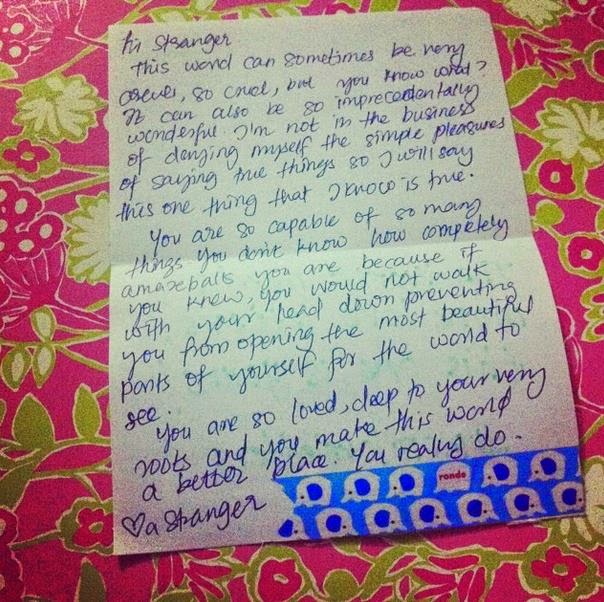 hi stranger
This world can sometimes be very
so cruel, but you know what?
It can also be so imprecedentally
wonderful. I'm not in the business
of denying myself the simple pleasures
of saying true things so I will say
this one thing that I know is true.
You are so capable of so many
things you don't know how completely
amazeballs you are because if
you knew, you would not walk
with your head down preventing
you from opening the most beautiful
parts of yourself for the world to
see.
You are so loved, deep to your very
roots and you make this world
a better place. You really do.
♡a stranger
rondo